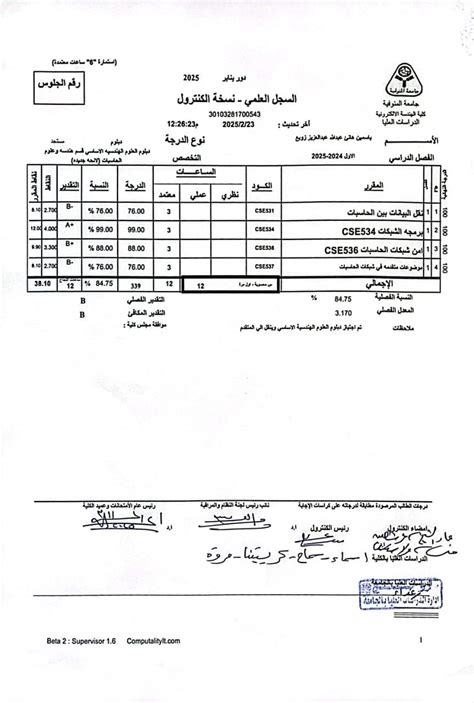 (استمارة "6" ساعات معتمدة)
رقم الجلوس
دور يناير 2025
السجل العلمي - نسخة الكنترول
30103281700543
آخر تحديث : 2025/2/23 12:26:23م
جامعة المنوفية
كلية الهندسة الالكترونية
الدراسات العليا
الأســـم ياسمين هاني عبدالله عبدالعزيز زويع
نوع الدرجة دبلوم مستجد
الفصل الدراسي الاول 2024-2025
التخصص دبلوم العلوم الهندسيه الاساسي قسم هندسه وعلوم الحاسبات (لائحه جديده)
م المقرر الكود الســاعــات نظري عملي معتمد الدرجة النسبة التقدير النقاط نقاط المقرر
1 نقل البيانات بين الحاسبات CSE531 3 76.00 76.00 % B- 2.700 8.10 100
2 برمجه الشبكات CSE534 CSE534 3 99.00 99.00 % A+ 4.000 12.00 100
3 امن شبكات الحاسبات CSE536 CSE536 3 88.00 88.00 % B+ 3.300 9.90 100
4 موضوعات متقدمه في شبكات الحاسبات CSE537 3 76.00 76.00 % B- 2.700 8.10 100
الإجمالي 12 12 339 84.75 % 12 38.10
النسبة الفصلية 84.75 % التقدير الفصلي B
المعدل الفصلي 3.170 التقدير المكافئ B
ملاحظات تم اجتياز دبلوم العلوم الهندسية الاساسي وينقل الي المتقدم موافقة مجلس كلية :
درجات الطالب المرصودة مطابقة لدرجاته على كراسات الإجابة
أمضاء الكنترول رئيس الكنترول نائب رئيس لجنة النظام والمراقبة رئيس عام الأمتحانات وعميد الكلية
الدراسات العليا اسماء - سماح - كريستينا - مروة
الدراسات العليا بالجامعة
Beta 2 : Supervisor 1.6 ComputalityIt.com 1